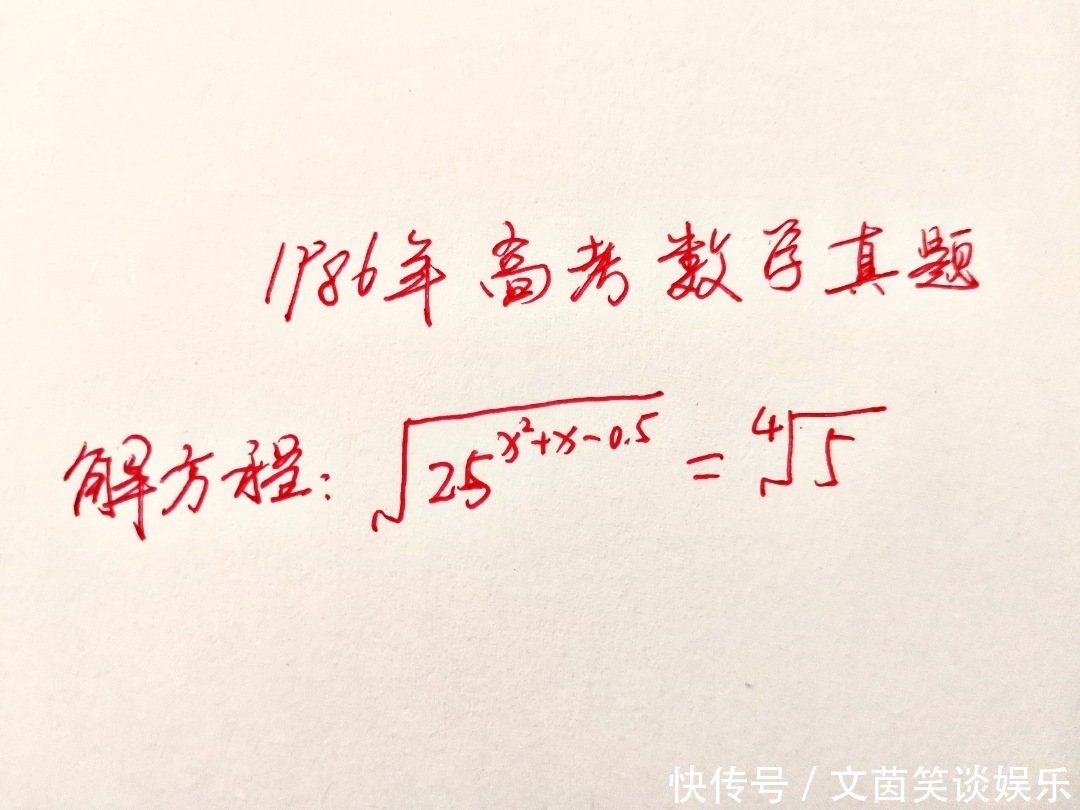 1986年高考数学真题
解方程: √25^(x²+x-0.5) = ⁴√5
快传号 / 文茵笑谈娱乐